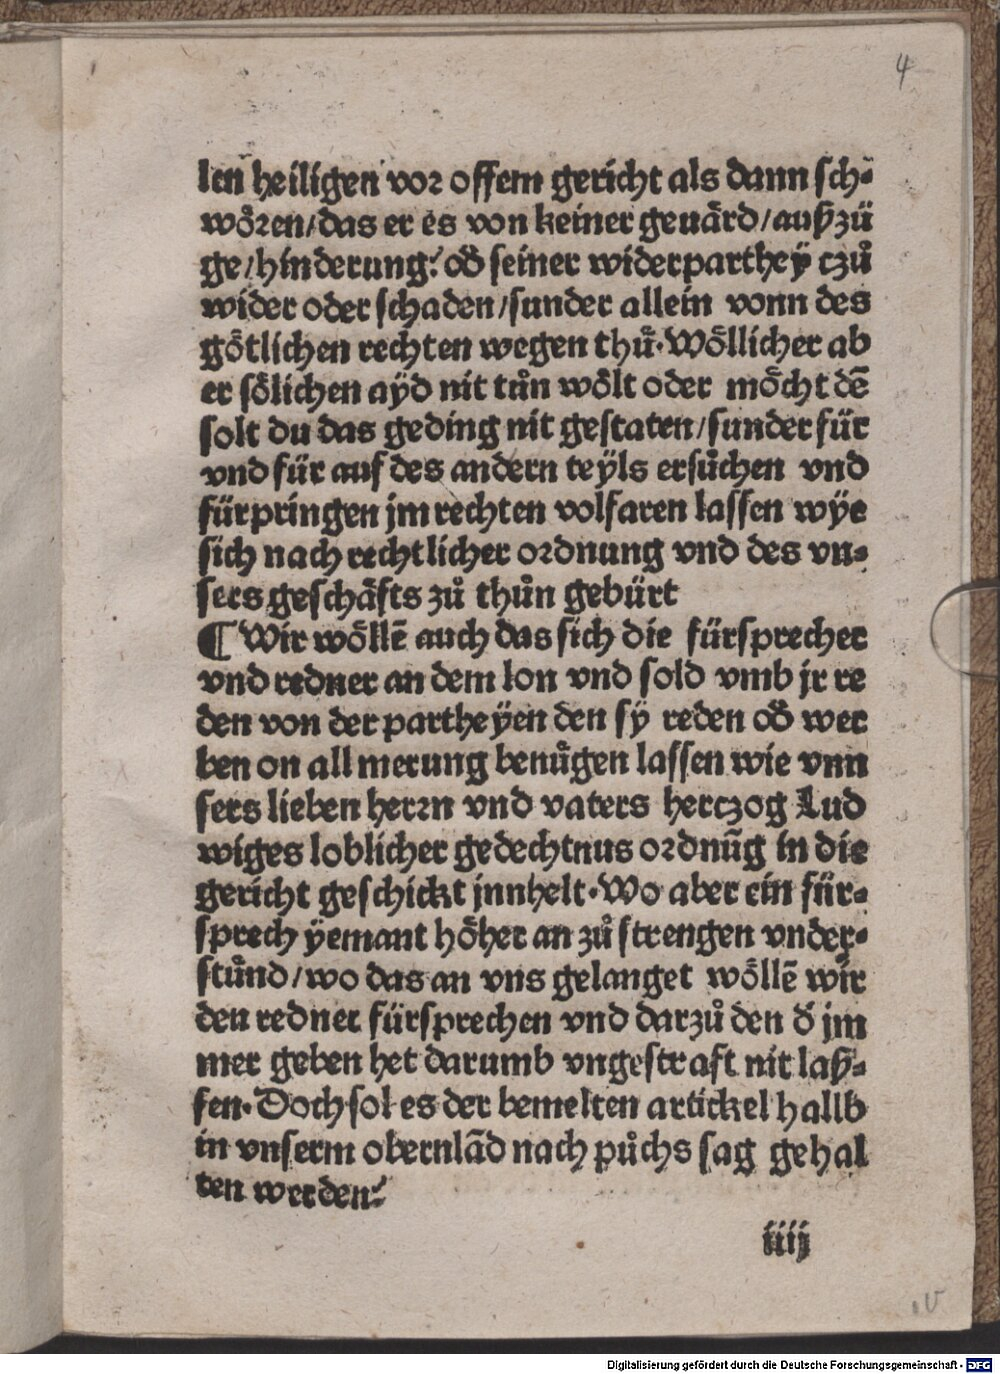 4
len heiligen vor offem gericht als dann sch-
woͤren/das er es von keiner geuaͤrd/außzü
ge/hinderung. od̾ seiner widerparthey czuͦ
wider oder schaden/sunder allein vonn des
goͤtlichen rechten wegen thuͦ. Woͤllicher ab
er soͤlichen aÿd nit tuͦn woͤlt oder moͤcht dē
solt du das geding nit gestaten/sunder für
vnd für auf des andern teÿls ersuͦchen vnd
fürpringen jm rechten volfaren lassen wÿe
sich nach rechtlicher ordnung vnd des vn-
sers geschaͤfts zuͦ thuͦn gebürt
¶ Wir woͤllē auch das sich die fürsprecher
vnd redner an dem lon vnd sold vmb jr re
den von der partheÿen den sÿ reden od̾ wer
ben on all merung benuͤgen lassen wie vnn
sers lieben herrn vnd vaters hertzog Lud
wiges loblicher gedechtnus ordnūg in die
gericht geschickt jnnhelt. Wo aber ein für-
sprech ÿemant hoͤher an zuͦ strengen vnder-
stuͦnd/wo das an vns gelanget woͤllē wir
den redner fürsprechen vnd darzuͦ den d̾ jm
mer geben het darumb vngestraft nit laß-
sen. Doch sol es der bemelten artickel hallb
in vnserm obernlād nach puͦchs sag gehal
ten werden.
iiij
v
Digitalisierung gefördert durch die Deutsche Forschungsgemeinschaft - DFG